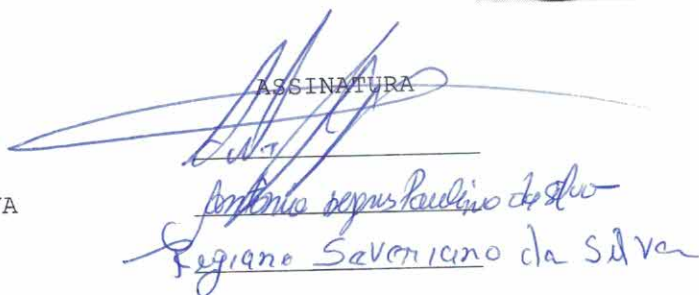 ASSINATURA
VA
Antônio Paulino da Silva
Regiano Saveriano da Silva